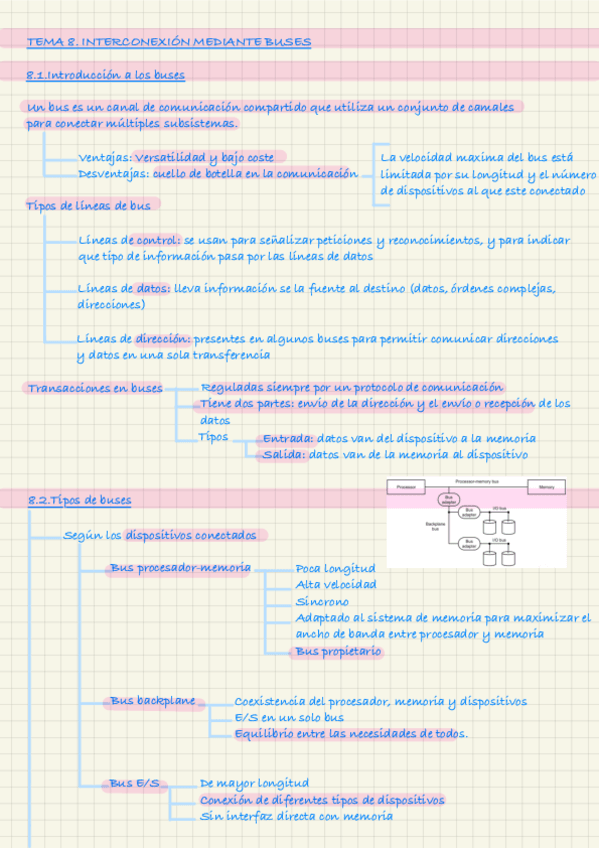 TEMA 8. INTERCONEXIÓN MEDIANTE BUSES
8.1.Introducción a los buses
Un bus es un canal de comunicación compartido que utiliza un conjunto de camales
para conectar múltiples subsistemas.
Ventajas: Versatilidad y bajo coste
Desventajas: cuello de botella en la comunicación
La velocidad maxima del bus está
limitada por su longitud y el número
de dispositivos al que este conectado
Tipos de líneas de bus
Líneas de control: se usan para señalizar peticiones y reconocimientos, y para indicar
que tipo de información pasa por las líneas de datos
Líneas de datos: lleva información se la fuente al destino (datos, órdenes complejas,
direcciones)
Líneas de dirección: presentes en algunos buses para permitir comunicar direcciones
y datos en una sola transferencia
Transacciones en buses
Reguladas siempre por un protocolo de comunicación
Tiene dos partes: envío de la dirección y el envío o recepción de los
datos
Tipos
Entrada: datos van del dispositivo a la memoria
Salida: datos van de la memoria al dispositivo
8.2.Tipos de buses
Processor
Processor-memory bus
Memory
Bus
adapter
Backplane
bus
Bus
adapter
I/O bus
Bus
adapter
I/O bus
Según los dispositivos conectados
Bus procesador-memoria
Poca longitud
Alta velocidad
Síncrono
Adaptado al sistema de memoria para maximizar el
ancho de banda entre procesador y memoria
Bus propietario
Bus backplane
Coexistencia del procesador, memoria y dispositivos
E/S en un solo bus
Equilibrio entre las necesidades de todos.
Bus E/S
De mayor longitud
Conexión de diferentes tipos de dispositivos
Sin interfaz directa con memoria